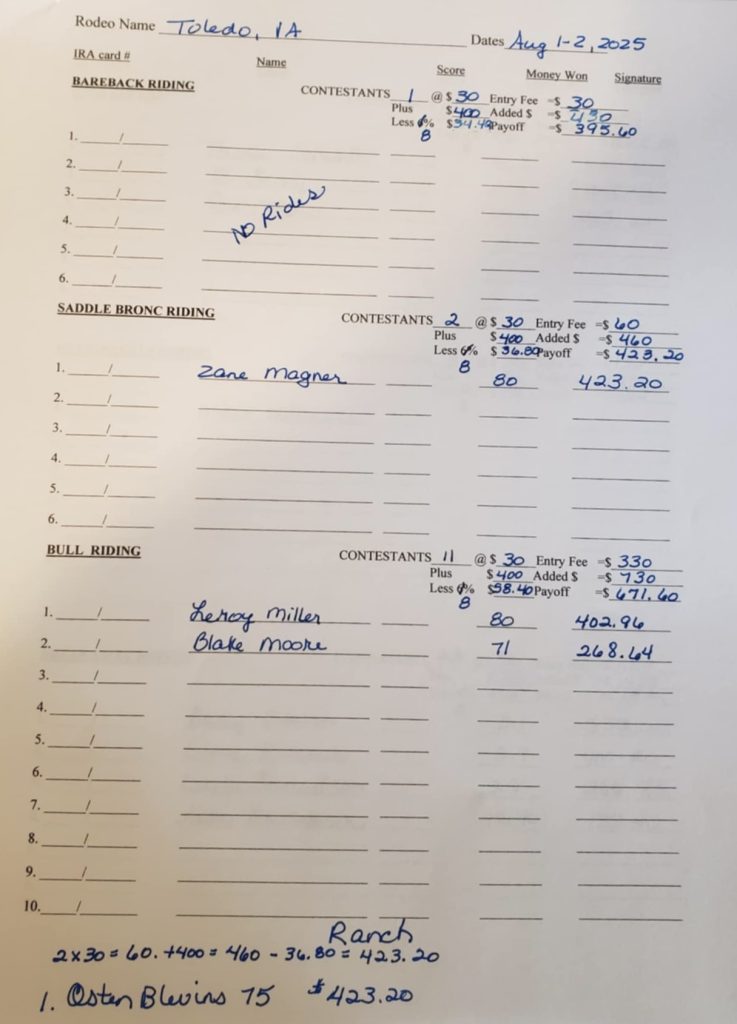 Rodeo Name Toledo, IA Dates Aug 1-2, 2025
IRA card # Name Score Money Won Signature
BAREBACK RIDING CONTESTANTS 1 @ $ 30 Entry Fee =$ 30
Plus $ 400 Added $ =$ 430
Less 6% 8 $ 34.40 Payoff =$ 395.60
1. /
2. /
3. /
4. /
5. /
6. /
NO Rides
SADDLE BRONC RIDING CONTESTANTS 2 @ $ 30 Entry Fee =$ 60
Plus $ 400 Added $ =$ 460
Less 6% 8 $ 36.80 Payoff =$ 423.20
1. / Zane Magner 80 423.20
2. /
3. /
4. /
5. /
6. /
BULL RIDING CONTESTANTS 11 @ $ 30 Entry Fee =$ 330
Plus $ 400 Added $ =$ 730
Less 6% 8 $58.40 Payoff =$ 671.60
1. / Leroy Miller 80 402.96
2. / Blake Moore 71 268.64
3. /
4. /
5. /
6. /
7. /
8. /
9. /
10. /
Ranch
2x30 = 60. +400 = 460 - 36.80 = 423.20
1. Osten Blevins 75 $423.20